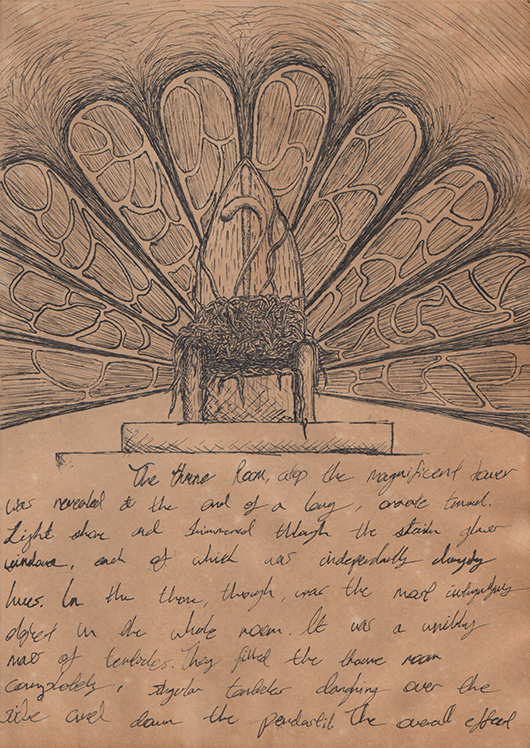 The throne Room, atop the magnificent tower
was revealed at the end of a long, ornate tunnel.
Light shone and shimmered through the stain glass
windows, each of which was independently changing
hues. In the throne, though, was the most intriguing
object in the whole room. It was a writhing
mass of tentacles. They filled the throne room
completely, singular tentacles dangling over the
side and down the The overall effect